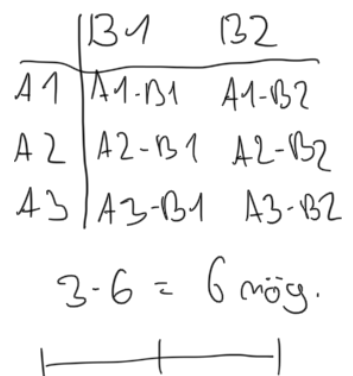 B1 B2
A1 A1-B1 A1-B2
A2 A2-B1 A2-B2
A3 A3-B1 A3-B2
3-6 = 6 mög.